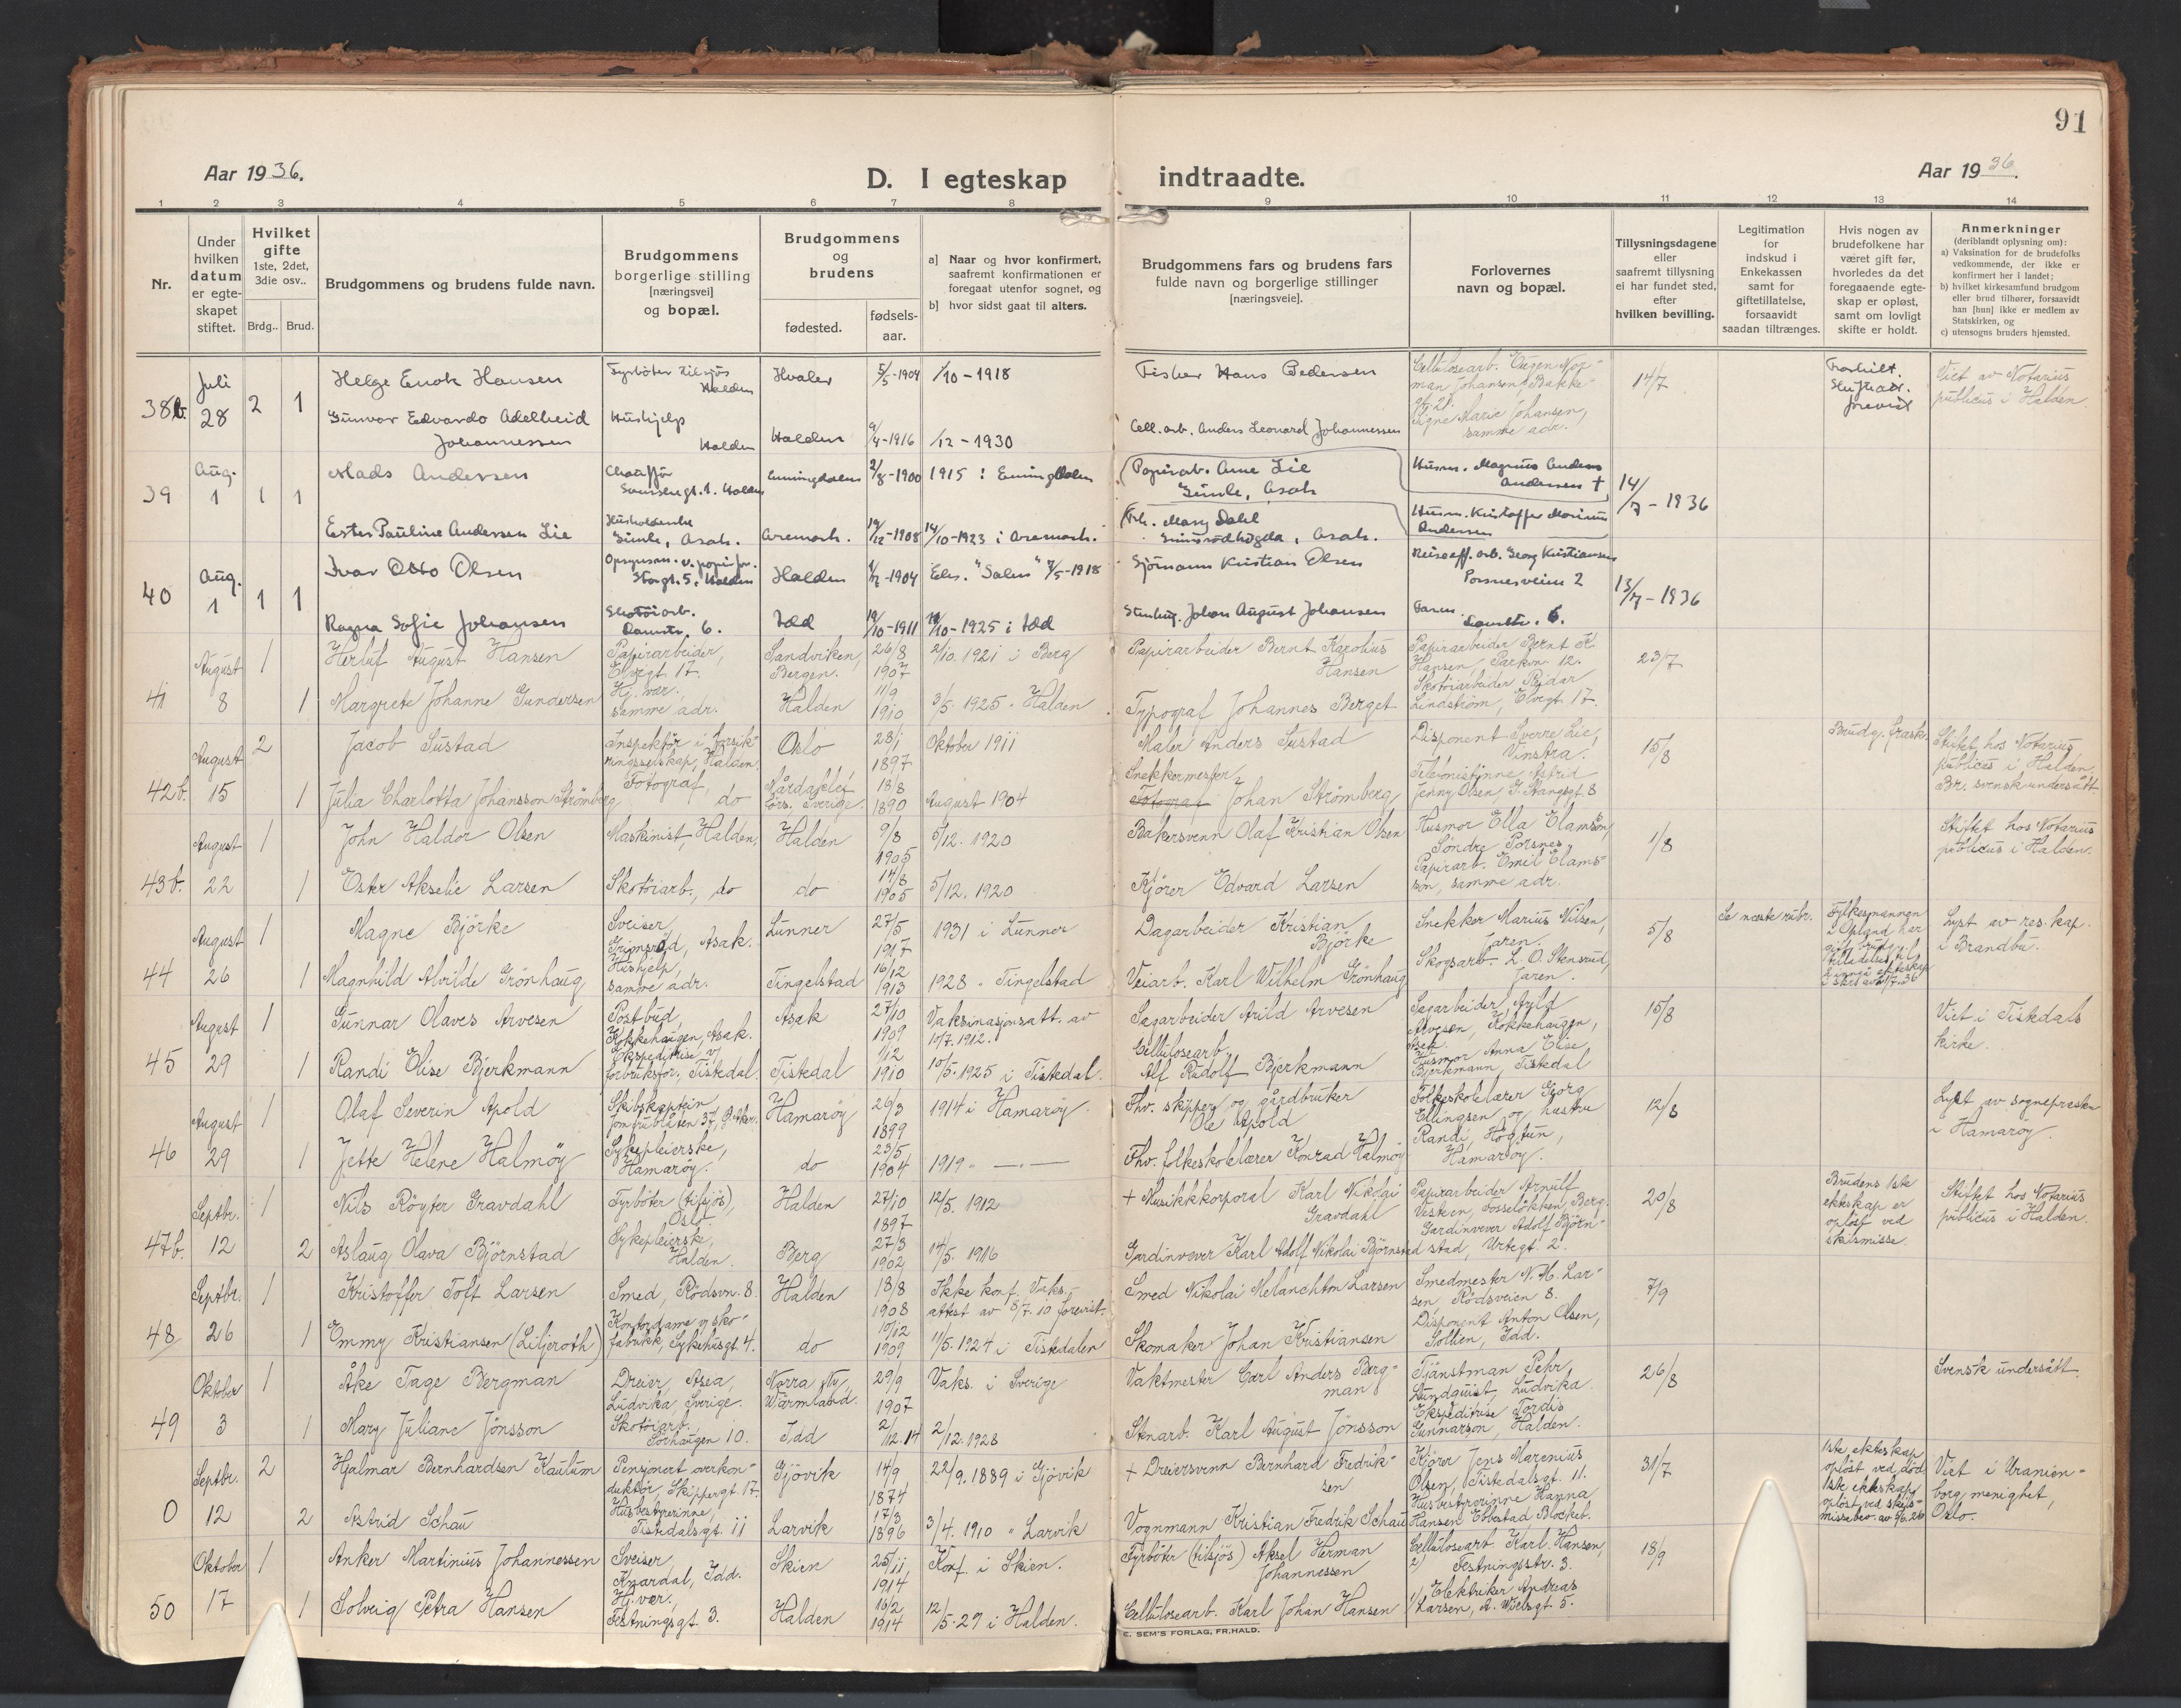 91
Aar 1936.
D. I egteskap indtraadte.
Aar 1936.
1 2 3 4 5 6 7 8 9 10 11 12 13 14
Nr.
Under
hvilken
datum
er egte-
skapet
stiftet.
Hvilket
gifte
1ste, 2det,
3die osv..
Brdg..
Brud.
Brudgommens og brudens fulde navn.
Brudgommens
borgerlige stilling
[næringsvei]
og bopæl.
Brudgommens
og
brudens
fødested.
fødsels-
aar.
a] Naar og hvor konfirmert,
saafremt konfirmationen er
foregaat utenfor sognet, og
b] hvor sidst gaat til alters.
Brudgommens fars og brudens fars
fulde navn og borgerlige stillinger
[næringsveie].
Forlovernes
navn og bopæl.
Tillysningsdagene
eller
saafremt tillysning
ei har fundet sted,
efter
hvilken bevilling.
Legitimation
for
indskud i
Enkekassen
samt for
giftetillatelse,
forsaavidt
saadan tiltrænges.
Hvis nogen av
brudefolkene har
været gift før,
hvorledes da det
foregaaende egte-
skap er opløst,
samt om lovligt
skifte er holdt.
Anmerkninger
(deriblandt oplysning om):
a) Vaksination for de brudefolks
vedkommende, der ikke er
konfirmert her i landet;
b) hvilket kirkesamfund brudgom
eller brud tilhører, forsaavidt
han [hun] ikke er medlem av
Statskirken, og
c) utensogns bruders hjemsted.
38b. Juli 28 2 1
Helge Enok Hansen
Fyrbøter tilsjøs Halden
Hvaler 5/5-1904 1/10-1918
Fisker Hans Pedersen
Celluloseart. Eugen Nor-
man Johansen, Bakke-
gt. 21.
14/7
Fraskilt.
Viet av Notarius
publicus i Halden.
Gunvor Edvardo Adelheid
Johannessen
Hushjelp
Halden
Halden 9/4-1916 1/12-1930
Cell. arb. Anders Leonard Johannessen
Signe Marie Johansen,
samme adr.
39 Aug. 1 1 1
Mads Andersen
Chauffør
Halden
Enningdalen 2/8-1900 1915 i Enningdalen
Papirarb. Arne Lie
Gimle, Asak
Husm. Magnus Anders
Andersen +
14/7-1936
Ester Pauline Andersen Lie
Gimle, Asak.
Aremark. 19/12-1908 14/10-1923 i Aremark.
Frk. Mary Dahl
Asak.
Husm. Kristoffer Marinius
Andersen
40 Aug. 1 1 1
Ivar Otto Olsen
Storgt. 5, Halden
Halden 1/2-1904 Eles. "Salem" 9/5-1918
Sjömann Kristian Olsen
Georg Kristiansen
Porsnesveien 2
13/7-1936
Ragna Sofie Johansen
Skotöiarb.
Damstr. 6.
Idd 19/10-1911 18/10-1925 i Idd
Stenhug. Johan August Johansen
Faren.
Damstr. 6.
41 August 8 1 1
Herluf August Hansen
Papirarbeider,
Elvegt. 17.
Sandviken,
Bergen. 26/8
1907 2/10. 1921 i Berg
Papirarbeider Bernt Karolius
Hansen
Papirarbeider Bernt K.
Hansen, Parkvn. 12.
23/7
Margrete Johanne Gundersen
Hj. vær.,
samme adr.
Halden 11/9
1910 3/5. 1925 " Halden
Typograf Johannes Berget
Skotöiarbeider Reidar
Lindström, Elvegt. 17.
42b. August 15 2 1
Jacob Sustad
Inspektör i forsik-
ringsselskap, Halden.
Oslo 28/1
1897 Oktober 1911
Maler Anders Sustad
Disponent Sverre Lie,
Vinstra.
15/8
Brudg. frask.
Stiftet hos Notarius
publicus i Halden.
Br. svensk undersått
Julia Charlotta Johansson Strömberg
Fotograf, do
Sverige. 18/8
1890 August 1904
Snekkermester
Johan Strömberg
Telefonistinne Astrid
Jenny Olsen, G. Stangsgt. 8
43b. August 22 1 1
John Haldor Olsen
Maskinist, Halden,
Halden 9/8
1905 5/12. 1920
Bakersvenn Olaf Kristian Olsen
Husmor Ella Elamson,
Söndre Porsnes
1/8
Stiftet hos Notarius
publicus i Halden.
Ester Akselie Larsen
Skotöiarb., do
do 14/8
1905 5/12. 1920
Kjörer Edvard Larsen
Papirarb. Emil Elams-
son, samme adr.
44 August 26 1 1
Magne Björke
Sveiser,
Grimsröd, Asak.
Lunner 27/5
1917 1931 i Lunner
Dagarbeider Kristian
Björke
Snekker Marius Nilsen,
Jaren.
5/8
Se næste rubr.
Fylkesmannen
i Opland har
gitt brudg.
tilladelse til
å inngå ekteskap
Lyst av res. kap.
i Brandbu.
Magnhild Alvilde Grönhaug
Hushjelp,
samme adr.
Tingelstad 16/12
1913 1928 " Tingelstad
Veiarb. Karl Wilhelm Grönhaug
Skogsarb. L. O. Stensrud,
Jaren.
45 August 29 1 1
Gunnar Olaves Arvesen
Postbud,
Kokkehaugen, Asak.
Asak 27/10
1909 Vaksinasjonsatt. av
10/7. 1912.
Sagarbeider Arild Arvesen
Sagarbeider Arild
Arvesen, Kokkehaugen,
Asak.
15/8
Viet i Tistedals
kirke.
Randi Elise Bjerkmann
Ekspeditrise v/
forbruksfor., Tistedal.
Tistedal 1/12
1910 10/5. 1925 i Tistedal.
Cellulosearb.
Alf Rudolf Bjerkmann
Husmor Anna Elise
Bjerkmann, Tistedal
46 August 29 1 1
Olaf Severin Apold
Skibskaptein,
Jomfrubråten 37, Ø. Aker.
Hamaröy 26/3
1899 1914 i Hamaröy.
Fhv. skipper og gårdbruker
Ole Apold
Folkeskolelærer Georg
Ellingsen og hustru
Randi, Högtun,
Hamaröy.
12/8
Lyst av sogneprosten
i Hamaröy.
Jette Helene Halmöy
Sykepleierske,
Hamaröy.
do 23/5
1904 1919 " —"—
Fhv. folkeskolelærer Konrad Halmöy
47b. Septbr. 12 1 2
Nils Röyter Gravdahl
Fyrböter (tilsjös),
Oslo.
Halden 27/10
1897 12/5. 1912
+ Musikkkorporal Karl Nikolai
Gravdahl
Papirarbeider Arnulf
Vesteen, Fosseløkken, Berg.
20/8
Brudens 1ste
ekteskap er
opløst ved
skilsmisse.
Stiftet hos Notarius
publicus i Halden.
Aslaug Olava Björnstad
Sykepleierske,
Halden.
Berg 27/3
1902 14/5. 1916
Gardinvever Karl Adolf Nikolai Björnstad
Gardinvever Adolf Björn-
stad, Urtegt. 2.
48 Septbr. 26 1 1
Kristoffer Toft Larsen
Smed, Rödsvn. 8.
Halden 18/8
1908 Ikke konf. Vaks.-
attest av 8/7. 10 forevist.
Smed Nikolai Melanchton Larsen
Smedmester N. M. Lar-
sen, Rödsveien 8.
7/9
Emmy Kristiansen (Liljeroth)
Kontordame v/ sko-
fabrikk, Sykehusgt. 4.
do 10/12
1909 11/5. 1924 i Tistedalen
Skomaker Johan Kristiansen
Disponent Anton Olsen,
Sollien, Idd.
49 Oktober 3 1 1
Åke Tage Bergman
Dreier, Asea,
Ludvika, Sverige.
Norra Ny,
Wärmland. 29/9
1907 Vaks. i Sverige
Vaktmester Carl Anders Berg-
man
Tjänstman Pehr
Lundquist, Ludvika.
26/8
Svensk undersått.
Mary Juliane Jönsson
Skotöiarb.
Sörhaugen 10.
Idd 2/12. 14 2/12. 1928
Stenarb. Karl August Jönsson
Ekspeditrise Tordis
Gunnarson, Halden.
0 Septbr. 12 2 2
Hjalmar Bernhardsen Kaulum
Pensjonert overkon-
duktör, Skippergt. 17.
Gjövik 14/9
1874 22/9. 1889 i Gjövik
+ Dreiersvenn Bernhard Fredrik-
sen
Kjörer Jens Marenius
Olsen, Tistedalsgt. 11.
31/7
1ste ekteskap
opløst ved död
1ste ekteskap
opløst ved skils-
missebev. av 9/6. 26
Viet i Uranien-
borg menighet,
Oslo.
Astrid Schau
Husbestyrerinne,
Tistedalsgt. 11
Larvik 17/3
1896 3/4. 1910 " Larvik
Vognmann Kristian Fredrik Schau
Husbestyrerinne Hanna
Hansen
50 Oktober 17 1 1
Anker Martinius Johannessen
Sveiser,
Knardal, Idd.
Skien 25/11
1914 Konf. i Skien.
Fyrböter (tilsjös) Aksel Herman
Johannessen
Cellulosearb. Karl Hansen,
2) Festningsstr. 3.
18/9
Solveig Petra Hansen
Hj. vær.,
Festningsgt. 3.
Halden 16/2
1914 12/5-29 i Halden.
Cellulosearb. Karl Johan Hansen
1) Elektriker Andreas
Larsen, A. Wielsgt. 5.
E. SEM'S FORLAG, FR.HALD.